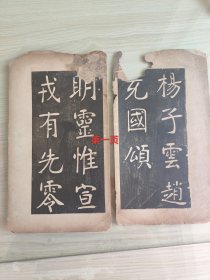 楊子雲趙
充國頌
明靈惟宣
戎有先零
第一页